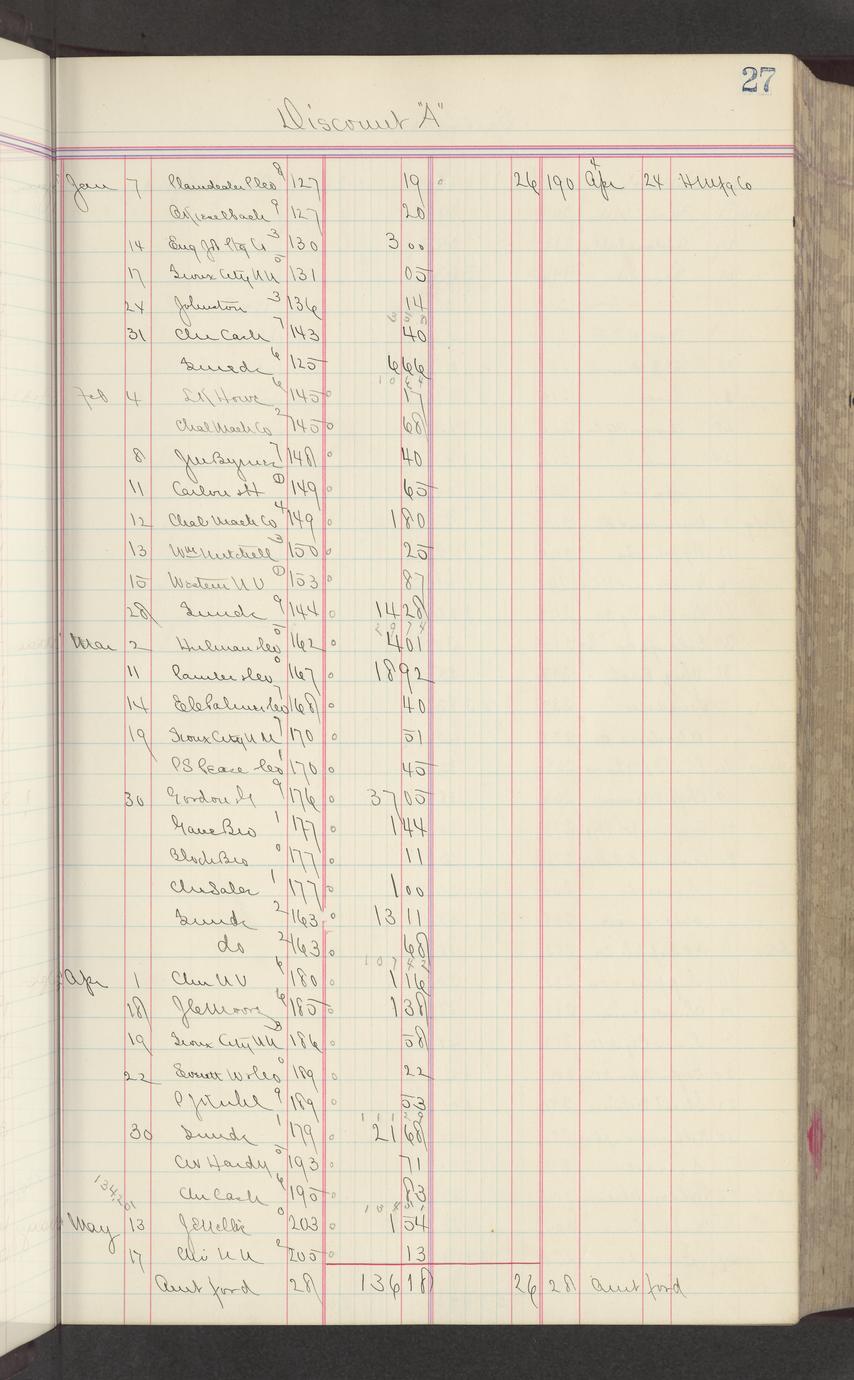 27
Discount "A"
Jan 7 Plaindealer P Co 8 127 19 26 190 Apr 4 24 H Mfg Co
127 20
14 Eng J & Ptg Co 3 130 3 00
17 Sioux City N N 5 131 05
24 Johnston 3 136 14
3 58
31 Chi Cash 7 143 40
Sunds 6 125 6 66
10 64
Feb 4 L K Howe 6 145 17
Chal Mach Co 2 145 68
8 J M Byrnes 7 148 40
11 Carlson & H 1 149 65
12 Chal Mach Co 4 149 1 80
13 Wm Mitchell 3 150 25
15 Western N U 1 153 87
28 Sunds 9 144 14 28
29 74
Mar 2 Hulman & Co 5 162 4 01
11 & Co 0 167 18 92
14 E C Palmer & Co 7 168 40
19 Sioux City N N 7 170 51
P S Pease & Co 1 170 45
30 Gordon 9 176 37 05
Gane Bro 1 177 1 44
Bloch Bro 0 177 11
Chi Sales 1 177 1 00
Sunds 2 163 13 11
do 2 163 68
107 42
Apr 1 Chi N U 6 180 1 16
18 J C Moore 6 185 1 38
19 Sioux City N N 3 186 58
22 Everett W & Co 0 189 22
P J 9 189 53
111 29
30 Sunds 1 179 21 68
C W Hardy 5 193 71
Chi Cash 6 195 83
134 51
May 13 J E 0 203 1 54
17 Chi N N 2 205 13
Amt ford 28 136 18 26 28 Amt ford